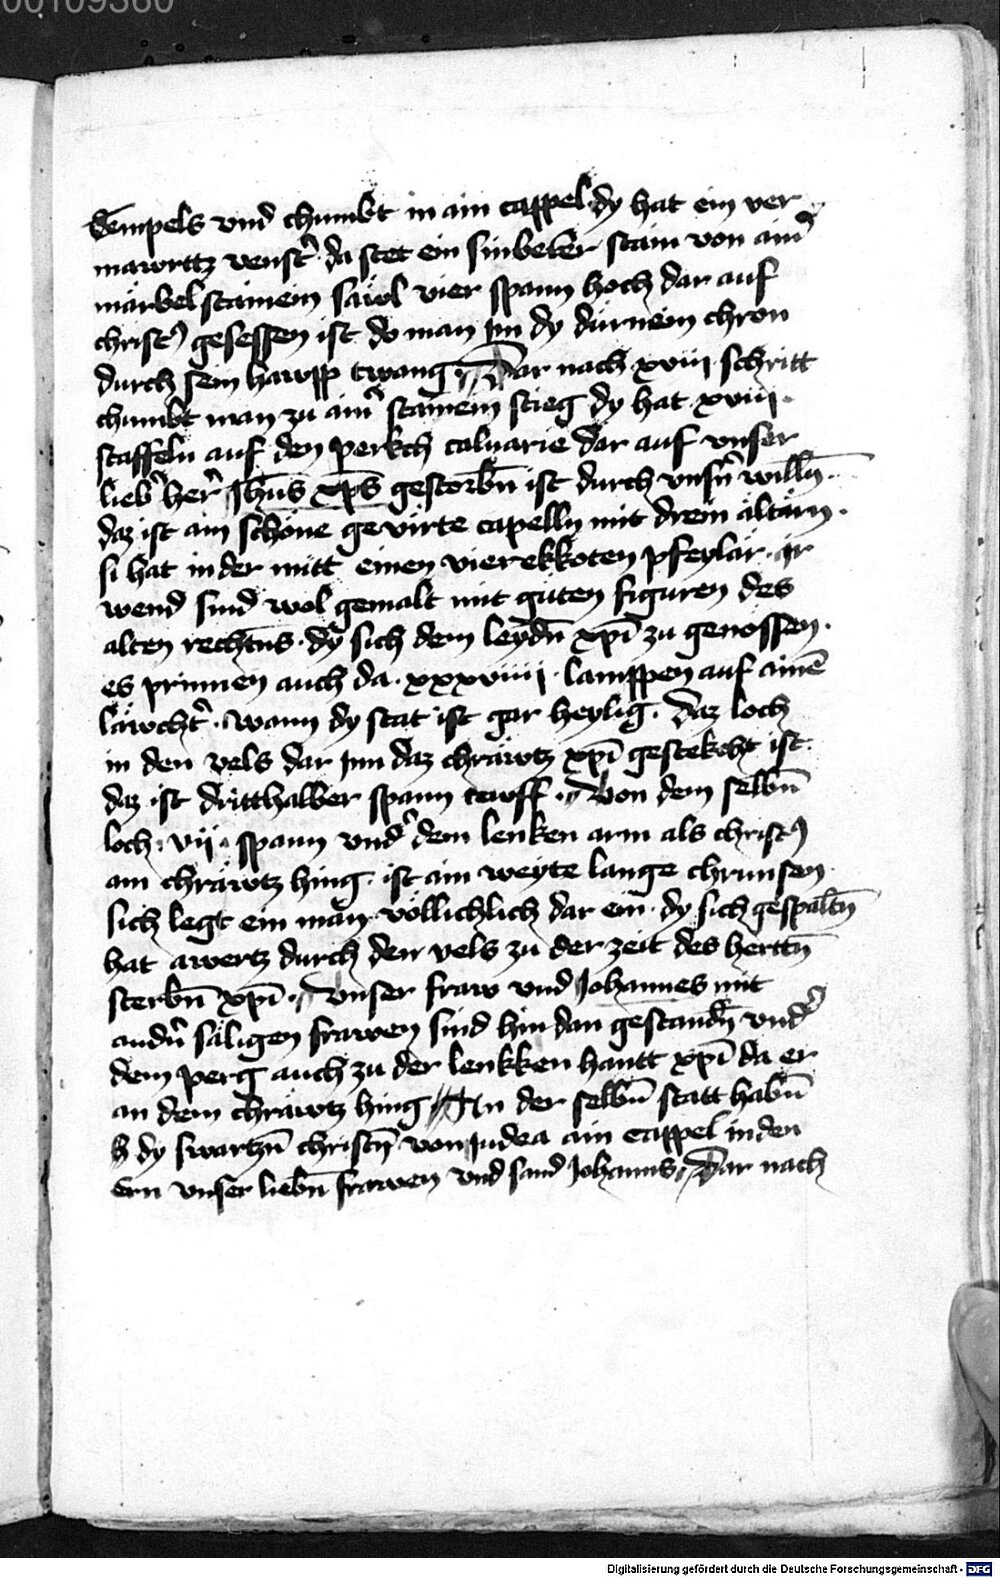 00109380
Tempels vnd chumbt in ain cappel dy hat ein ver
mawrttz venstˀ da stet ein sinbeler stain von aimˀ
märbelstainein säwl vier spann hoch dar auf
christꝰ gesessen ist do man im dy dürnein chron
durch sein hawpp twang Dar nach xviij schritt
chumbt man zu aimˀ stainein stieg dy hat xviij
staffeln auf den perkch caluarie dar auf vnser
liebˀ herˀ Jhūs xp̄s gestorbn̄ ist durch vnsn̄ˀ willn̄
daz ist ain schöne gevirte capelln mit drein altärn
si hat in der mitt einen vierekkoten pfeylär ir
wend sind wol gemalt mit güten figuren des
alten rechtn̄s dy sich dem leydn̄ xpī zu genossen
es prinnen auch da xxxviiij lamppen auf ainē
läwchtˀ wann dy stat ist gar heylig Daz loch
in den vels dar jnn daz chräwtz xpī gestekcht ist
daz ist dritthalber spann tewff Von dem selbn̄
loch vij spann vndˀ dem lenken arm als christꝰ
am chräwtz hing ist ain weyte lange chrunsen
sich legt ein man völlichlich dar ein dy sich gespaltn̄
hat awertz durch den vels zu der zeit des hertn̄
sterbn̄ xpī Vnser fraw vnd Johannes mit
andn̄ˀ säligen frawen sind hin dan gestandn̄ vndˀ
dem perg auch zu der lenkken hantt xpī da er
an dem chräwtz hing An der selbn̄ statt habn̄
dy swartzn̄ christn̄ von Judea ain cappel in den
ern vnser liebn̄ frawen vnd sand Johanns Dar nach
Digitalisierung gefördert durch die Deutsche Forschungsgemeinschaft - DFG